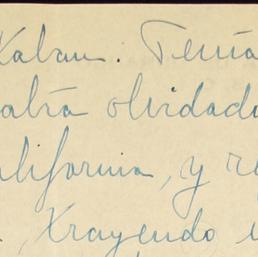 Kaban. Tenía
abía olvidado
alifornia, y re
, Xrayendo u